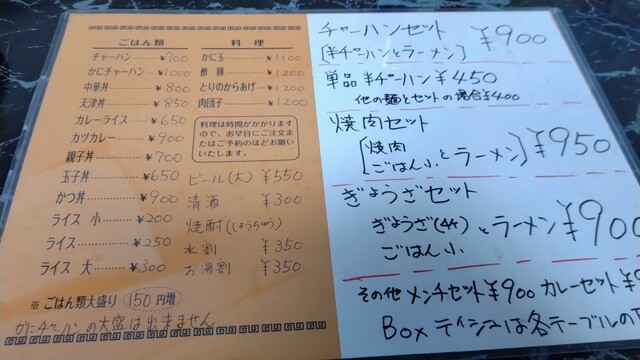 ごはん類
チャーハン ¥700
かにチャーハン ¥1000
中華丼 ¥800
天津丼 ¥850
カレーライス ¥650
カツカレー ¥900
親子丼 ¥700
玉子丼 ¥650
かつ丼 ¥900
ライス 小 ¥200
ライス ¥250
ライス 大 ¥300
※ ごはん類大盛り 150円増
かにチャーハンの大盛は出来ません
料理
かに玉 ¥1100
酢豚 ¥1200
とりのからあげ ¥1200
肉団子 ¥1200
料理は時間がかかります
ので、お早目にご注文ま
たはご予約のほどお願い
いたします。
ビール(大) ¥550
清酒 ¥300
焼酎(しょうちゅう)
水割 ¥350
お湯割 ¥350
チャーハンセット ¥900
[半チャーハンとラーメン]
単品 半チャーハン ¥450
他の麺とセットの場合¥400
焼肉セット ¥950
[焼肉
ごはん小 とラーメン]
ぎょうざセット ¥900
ぎょうざ(4ケ)とラーメン
ごはん小
その他 メンチセット¥900 カレーセット¥
Box ティシューは各テーブルの